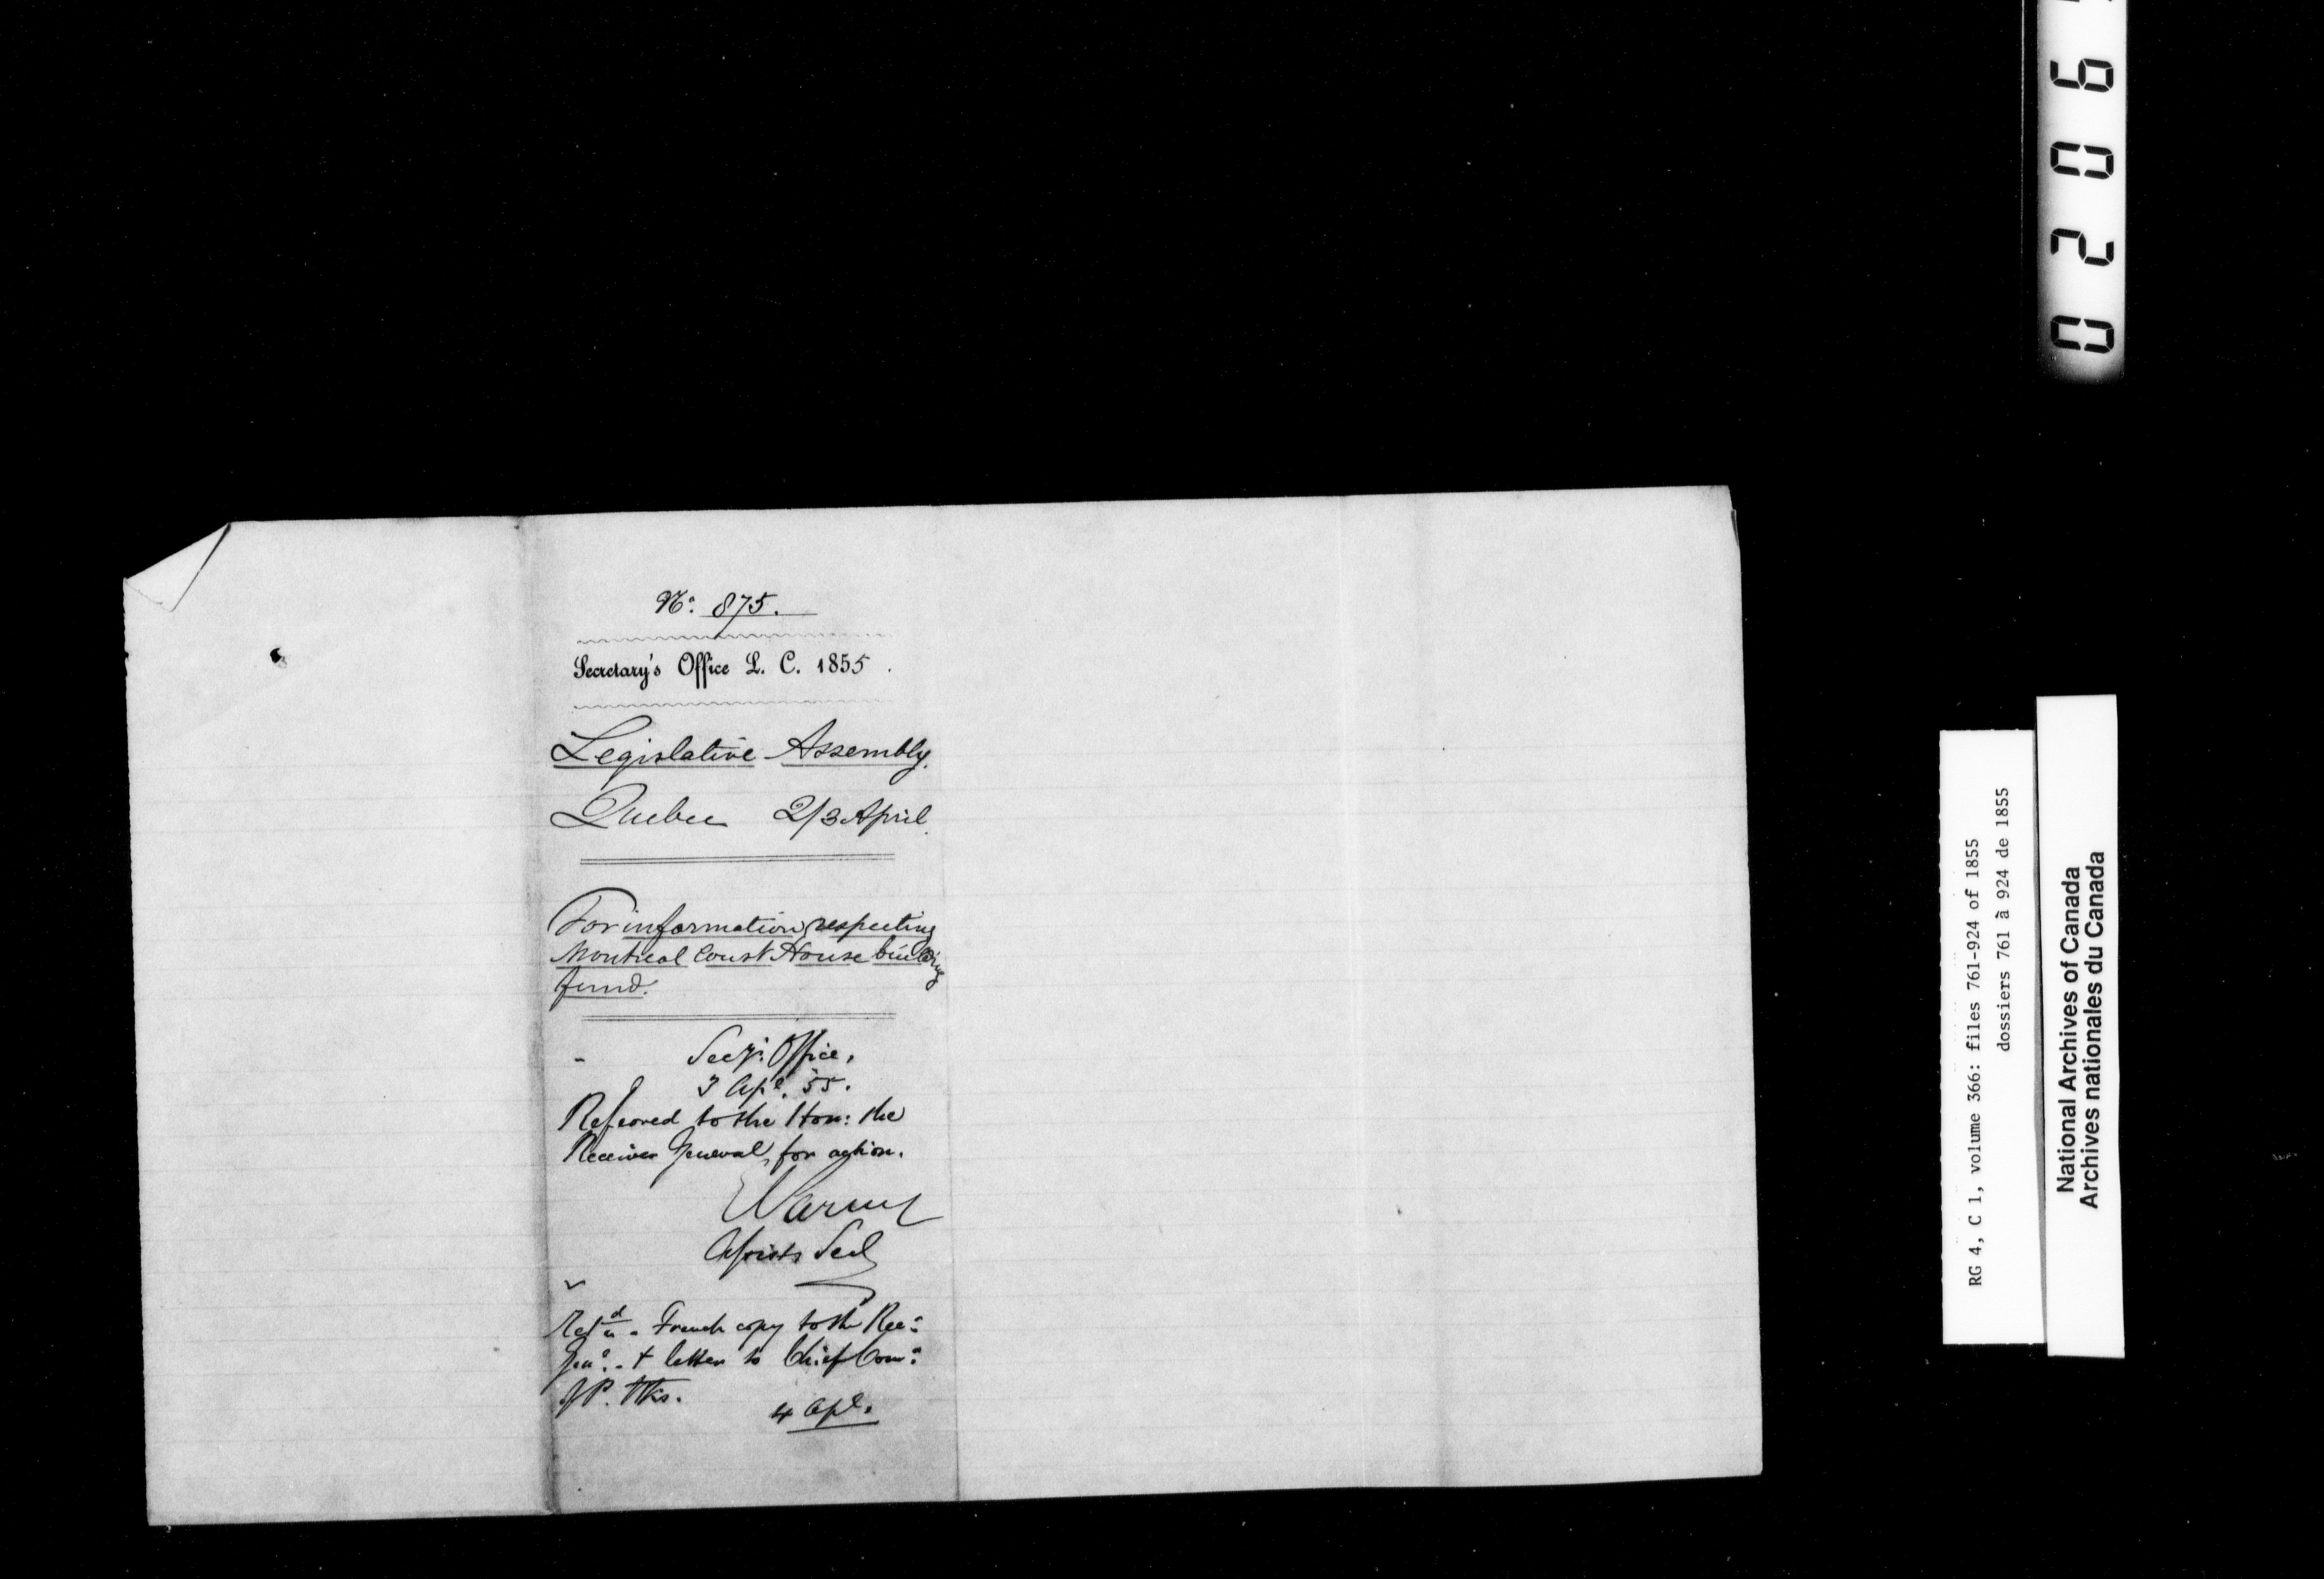 No. 875.
Secretary's Office L. C. 1855.
Legislative Assembly.
Quebec 2/3 April.
For information respecting
Montreal Court House building
fund.
Secy's. Office,
3 Apl. 55.
Referred to the Hon: the
Receiver General, for action.
Assist Secy
French copy to the Rec:
Genl. - + letter to Chief Com:
P. Wks.
4 Apl.
0 2 0 6
RG 4, C 1, volume 366: files 761-924 of 1855
dossiers 761 à 924 de 1855
National Archives of Canada
Archives nationales du Canada